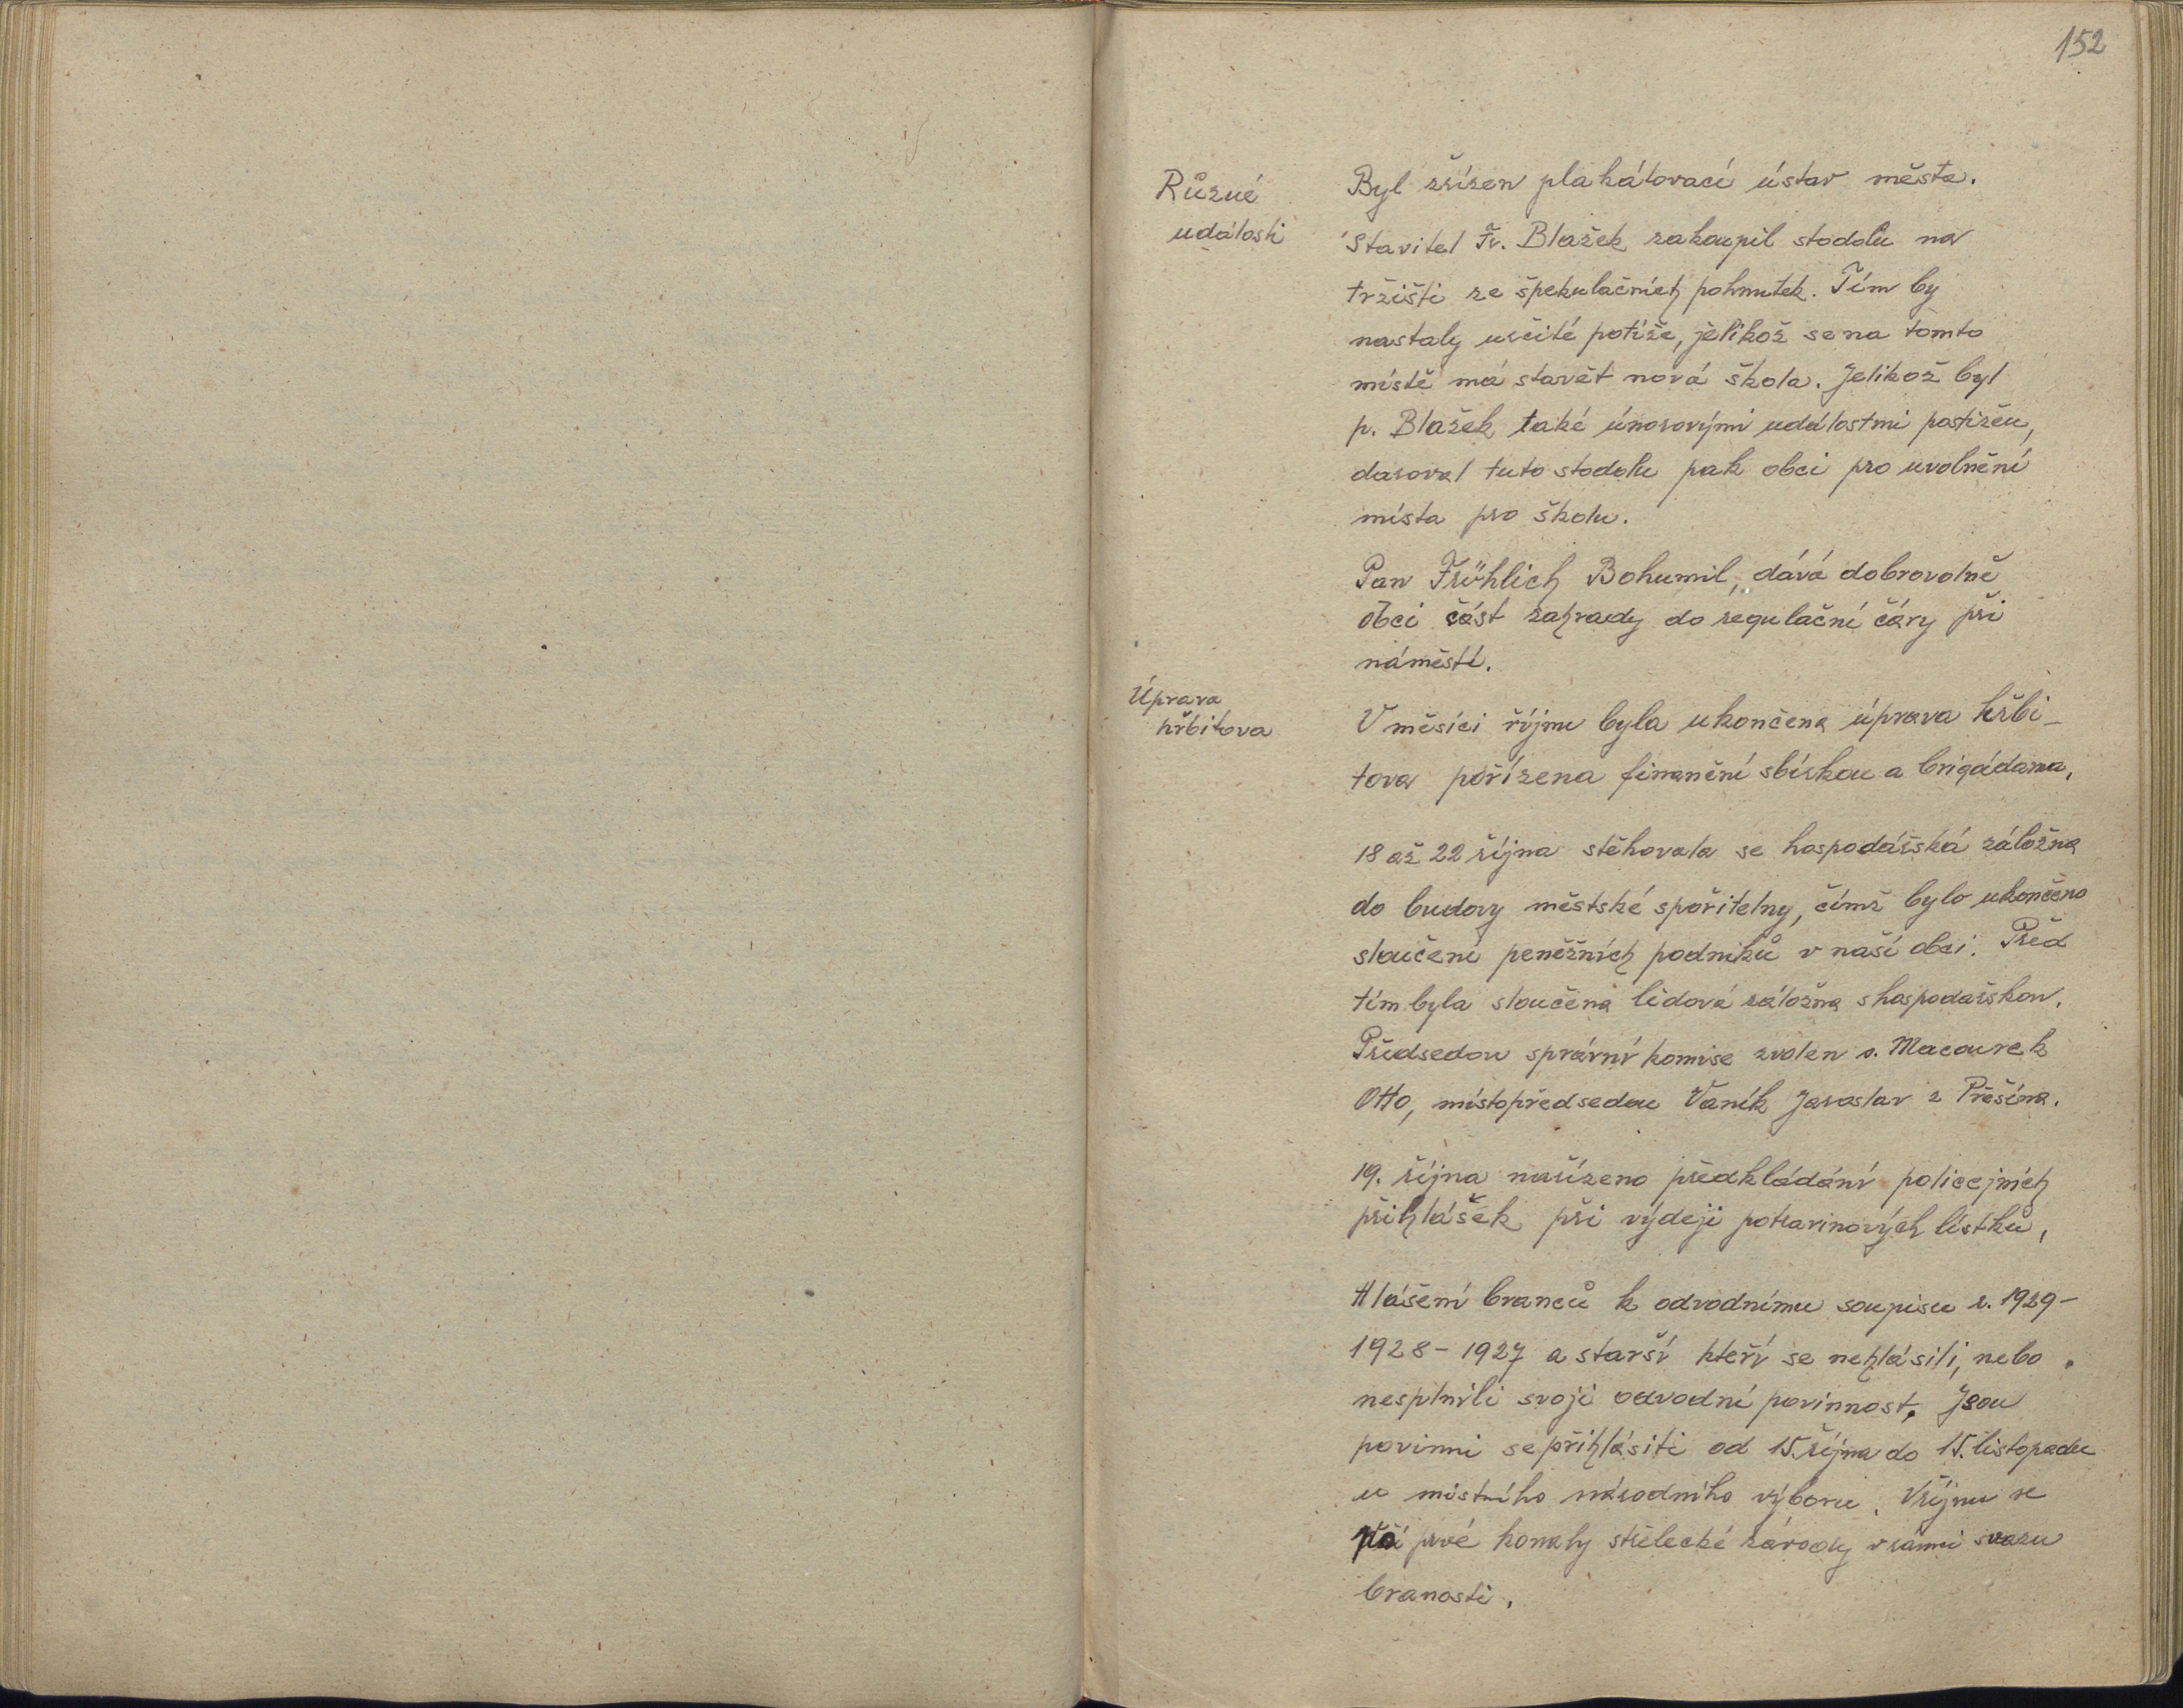 152
Různé
události
Byl zřízen plakátovací ústav města.
Stavitel Fr. Blažek zakoupil stodolu na
tržišti ze špekulačních pohnutek. Tím by
nastaly určité potíže, jelikož se na tomto
místě má stavět nová škola. Jelikož byl
p. Blažek také únorovými událostmi postižen,
daroval tuto stodolu pak obci pro uvolnění
místa pro školu.
Pan Fröhlich Bohumil, dává dobrovolně
obci část zahrady do regulační čáry při
náměstí.
Úprava
hřbitova
V měsíci říjnu byla ukončena úprava hřbi-
tova pořízena finanční sbírkou a brigádama,
18 až 22 října stěhovala se hospodářská záložna
do budovy městské spořitelny, čímž bylo ukončeno
sloučení peněžních podniků v naší obci. Před
tím byla sloučena lidová záložna s hospodářskou.
Předsedou správní komise zvolen s. Macourek
Otto, místopředsedou Vaník Jaroslav z Přešína.
19. října nařízeno předkládání policejních
přihlášek při výdeji potravinových lístků,
Hlášení branců k odvodnímu soupisu r. 1929-
1928-1927 a starší kteří se nehlásili, nebo
nesplnili svoji odvodní povinnost. Jsou
povinni se přihlásiti od 15. října do 15. listopadu
u místního národního výboru. V říjnu se
prvé konaly střelecké závody v rámci svazu
branosti.